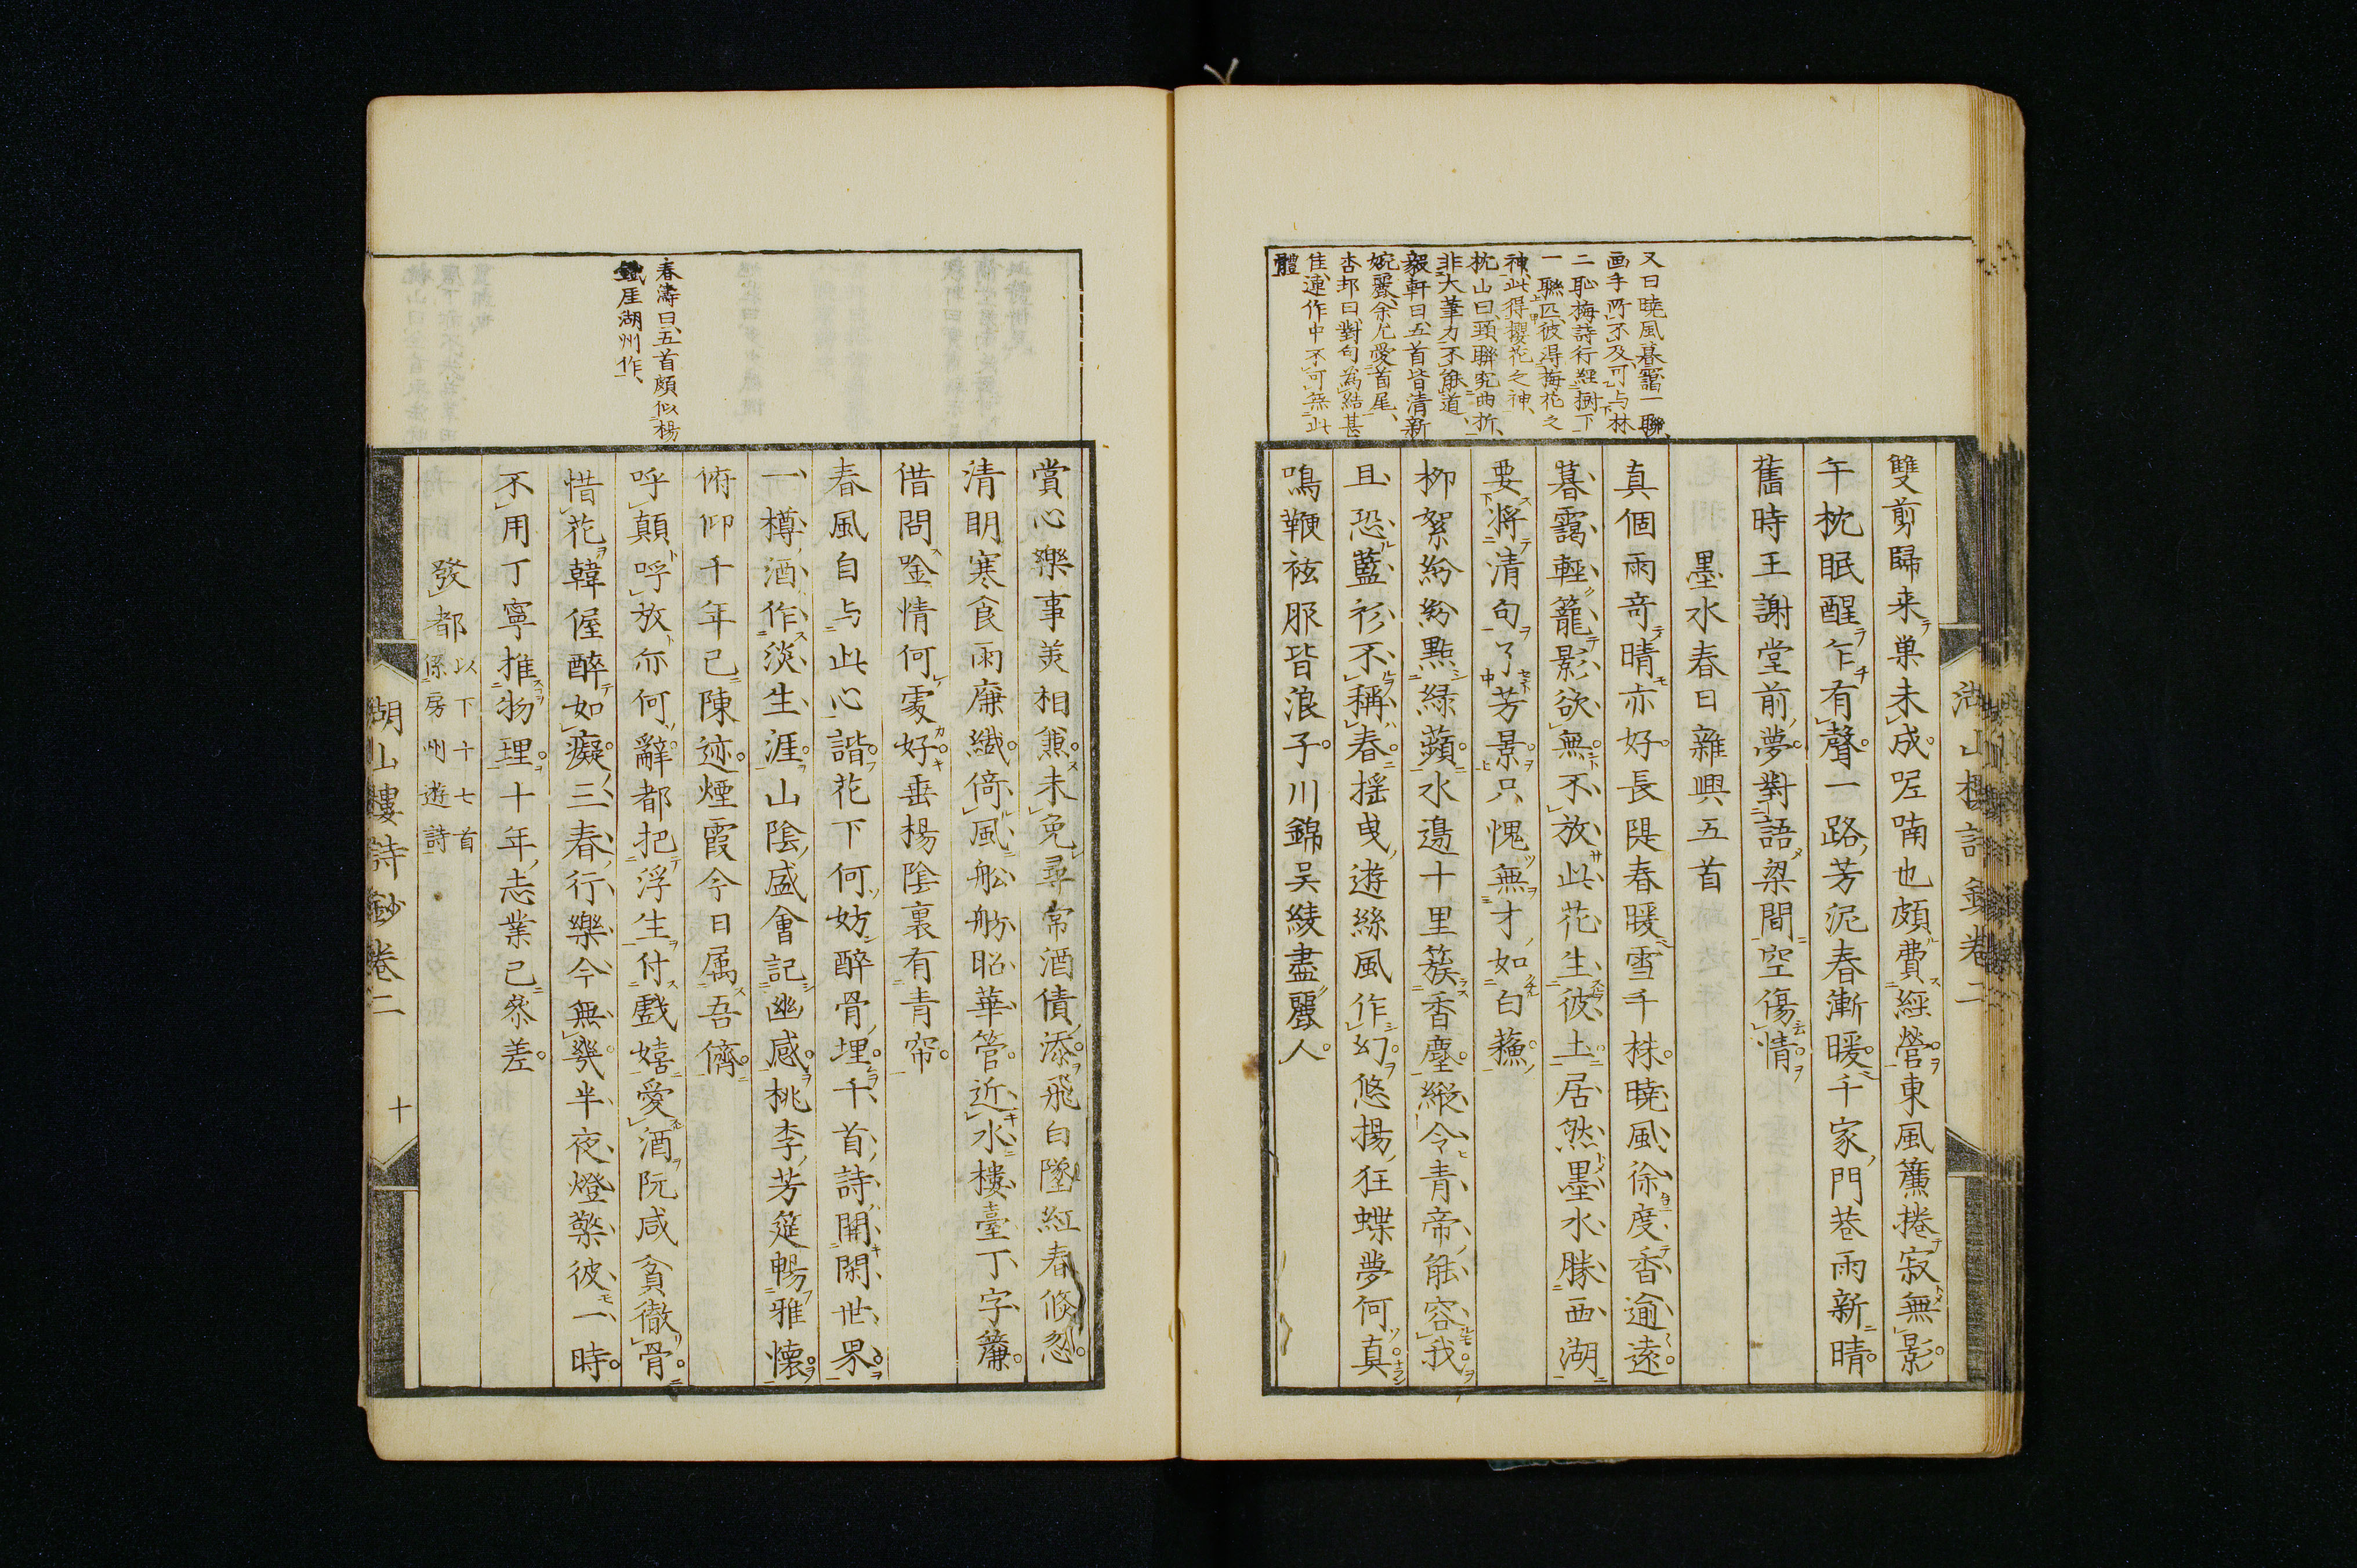 又曰曉風暮靄一聯
画手所不及可与林
二恥梅詩行經樹下
一聯匹彼得梅花之
神此得櫻花之神
枕山曰頸聯究曲折
非大筆力不能道
毅軒曰五首皆清新
婉麗余尤愛首尾
杏邨曰對句為結甚
佳連作中不可無此
體
雙剪歸来巢未成呢喃也頗費經營東風簾捲寂無影
午枕眠醒乍有聲一路芳泥春漸暖千家門巷雨新晴
舊時王謝堂前夢對語梁間空傷情
墨水春日雜興五首
真個雨奇晴亦好長隄春暖雪千株曉風徐度香逾遠
暮靄輕籠影欲無不放此花生彼土居然墨水勝西湖
要將清句了芳景只愧無才如白蘓
柳絮紛紛點緑蘋水邊十里簇香塵縱令青帝能容我
且恐藍衫不稱春搖曳遊絲風作幻悠揚狂蝶夢何真
鳴鞭袨服皆浪子川錦吴綾盡麗人
湖山樓詩鈔卷二
春濤曰五首頗似楊
鐵厓湖州作
賞心樂事美相兼未免尋常酒債添飛白墜紅春倏忽
清明寒食雨廉纖倚風舩舫昭華管近水樓臺丁字簾
借問唫情何處好垂楊陰裏有青帘
春風自与此心諧花下何妨醉骨埋千首詩開閑世界
一樽酒作淡生涯山陰盛會記幽感桃李芳筵暢雅懷
俯仰千年已陳迹煙霞今日属吾儕
呼顛呼放亦何辭都把浮生付戲嬉愛酒阮咸貧徹骨
惜花韓偓醉如癡三春行樂今無幾半夜燈檠彼一時
不用丁寧推物理十年志業已叅差
發都以下十七首
係房州遊詩
湖山樓詩鈔卷二 十